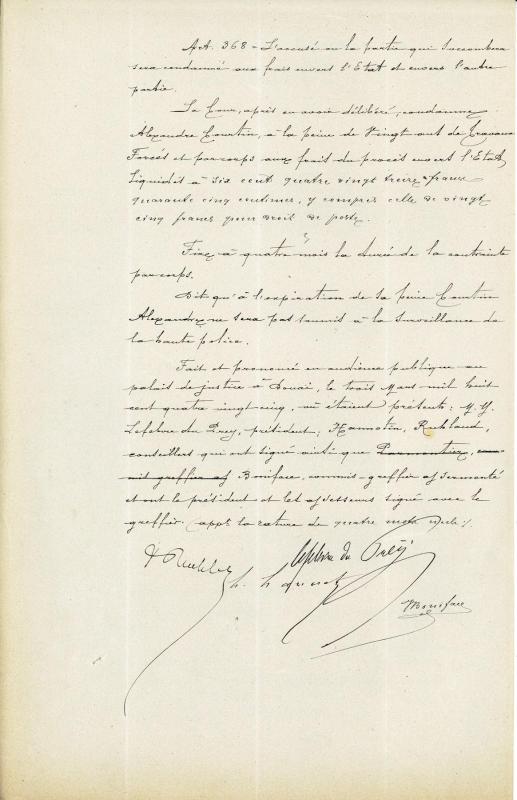 Art. 368 - L'accusé ou la partie qui succombera
sera condamné aux frais envers l'Etat et envers l'autre
partie.
La Cour, après en avoir délibéré, condamne
Alexandre Courtin, à la peine de Vingt ans de Travaux
Forcés et par corps aux frais du procès envers l'Etat,
liquidés à six cent quatre vingt treize francs
quarante cinq centimes, y compris celle de vingt
cinq francs pour droit de poste.
Fixe à quatre mois la durée de la contrainte
par corps.
Dit qu'à l'expiration de sa peine Courtin
Alexandre ne sera pas soumis à la surveillance de
la haute police.
Fait et prononcé en audience publique au
palais de justice à Douai, le trois Mars mil huit
cent quatre vingt-cinq, où étaient présents: M. M.
Lefebvre du Prey, président, Hannotin,
conseillers qui ont signé ainsi que Parmentier, com-
mis greffier as Boniface, commis-greffier assermenté
et ont le président et les assesseurs signé avec le
greffier. app. la rature de quatre mots nuls
Lefebvre du Prey
Boniface